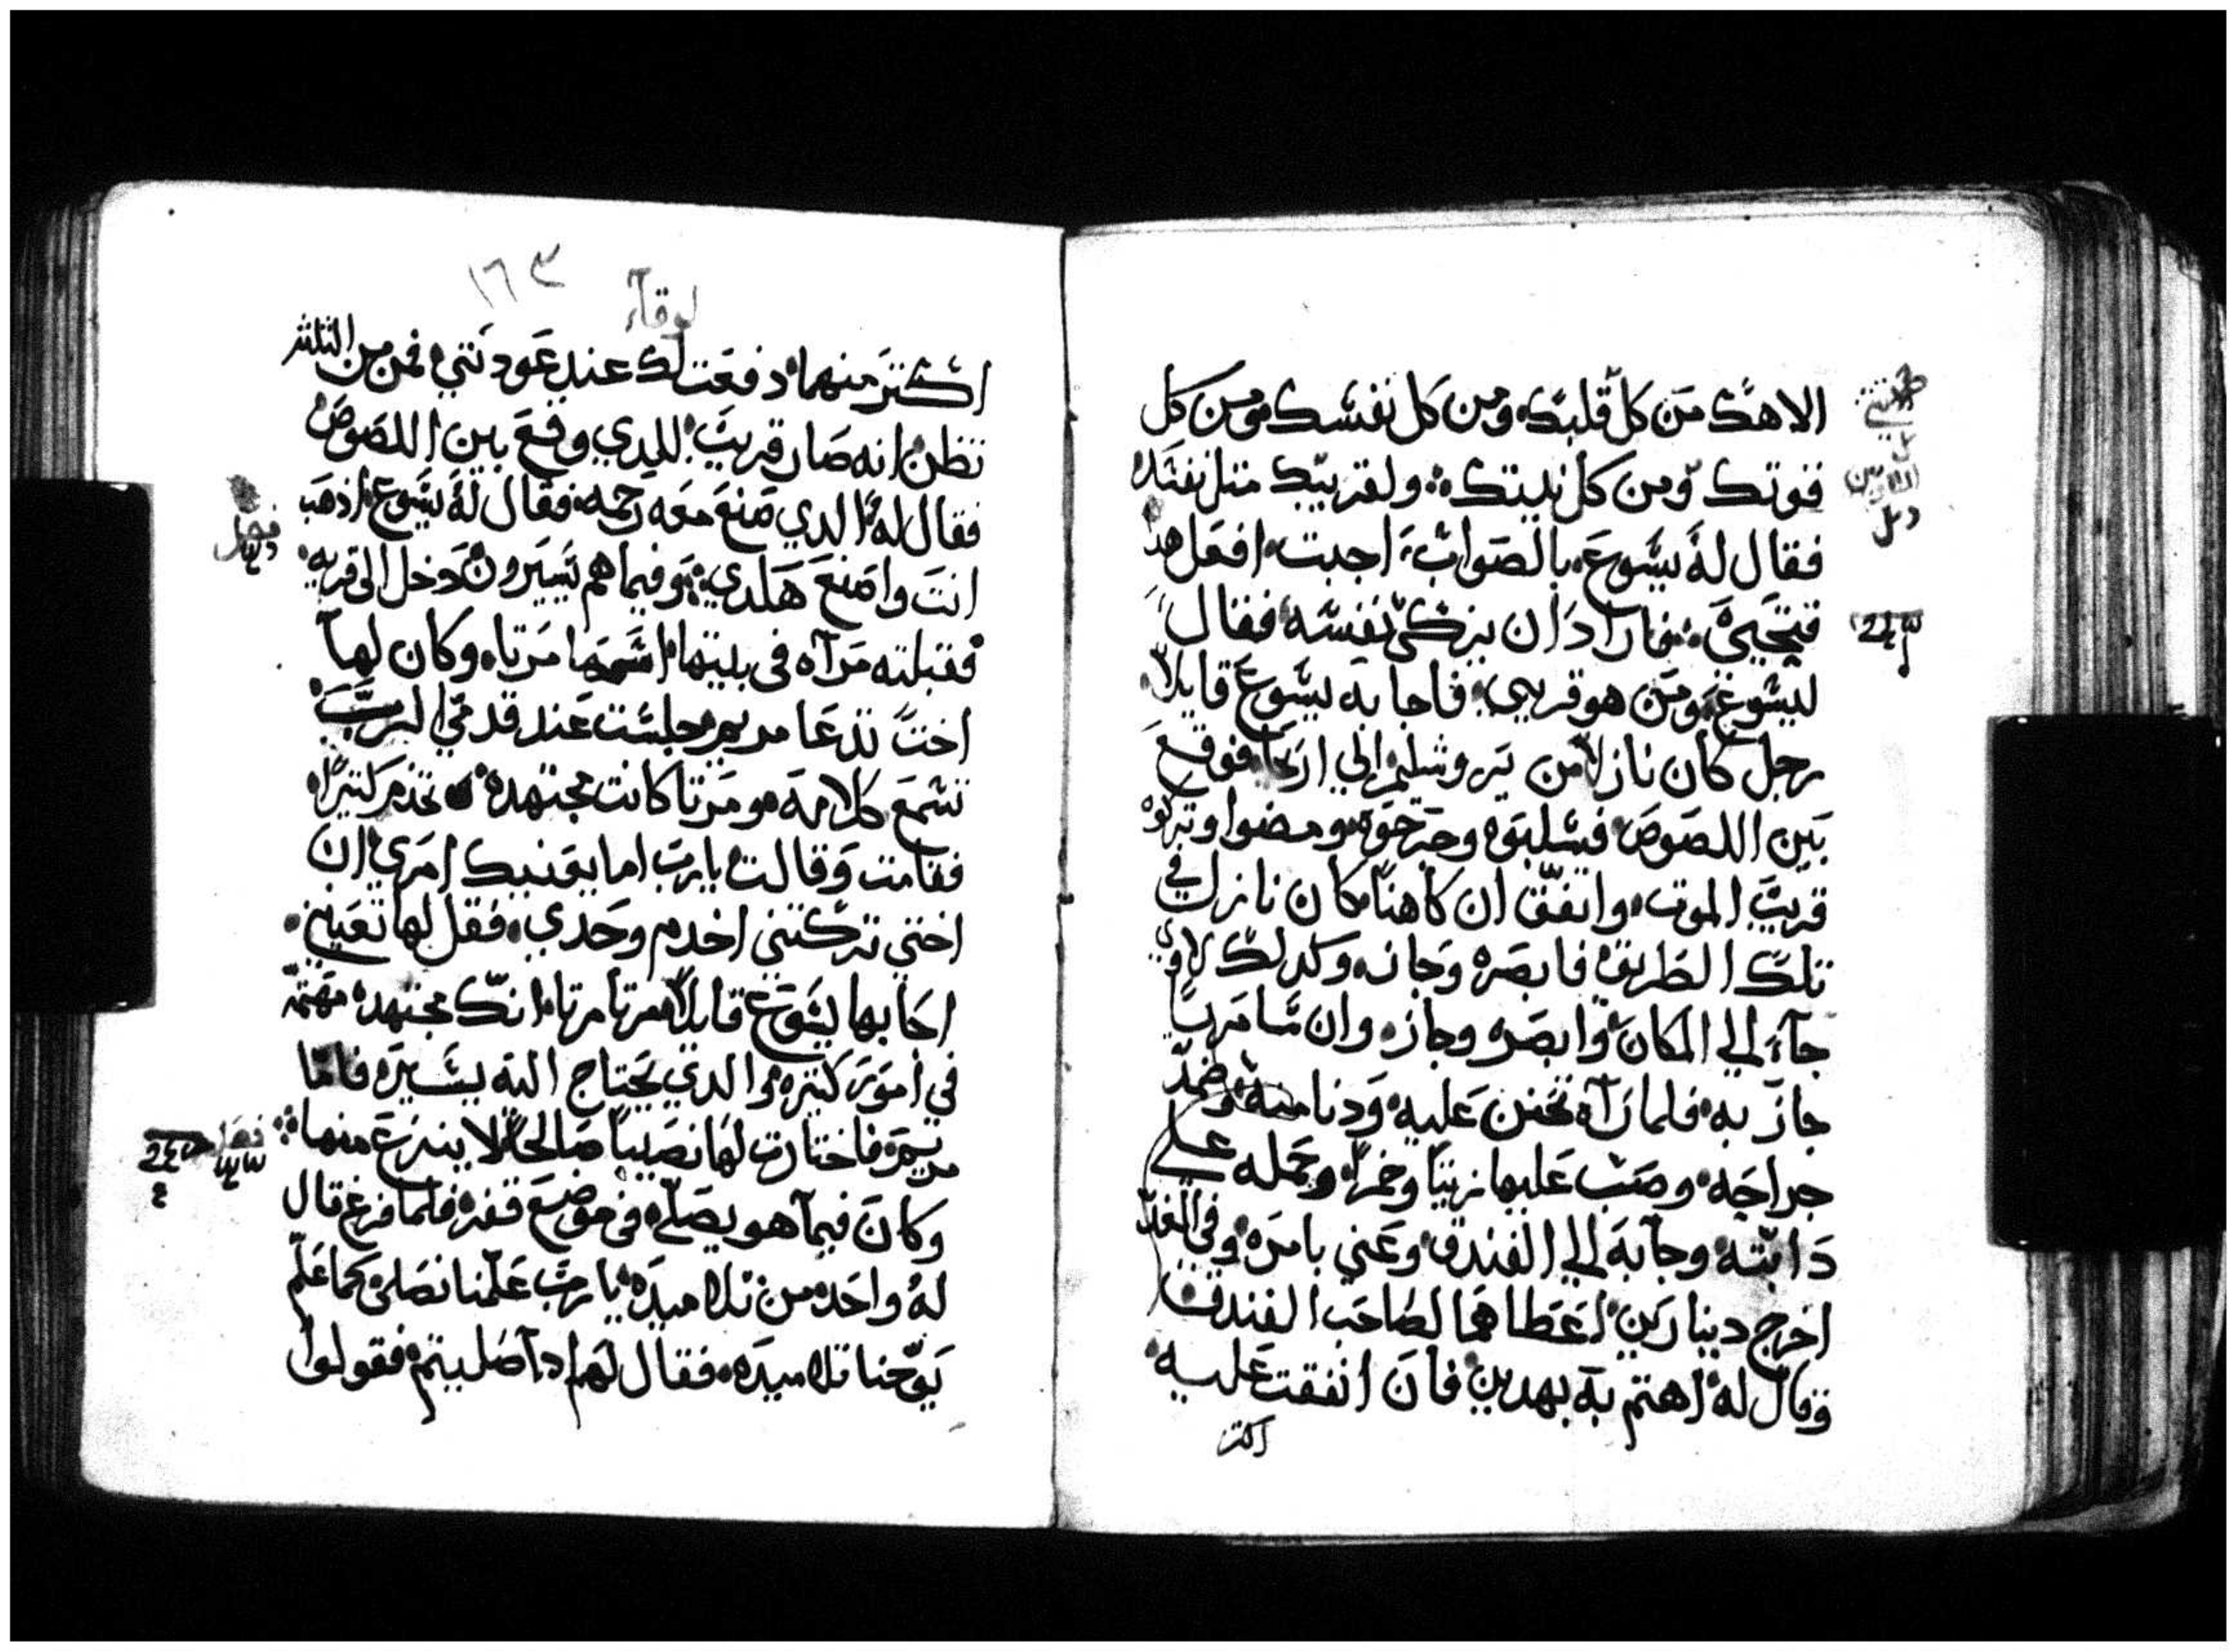 الاهك من كل قلبك ومن كل نفسك ومن كل
قوتك ومن كل نيتك ولقريبك متل نفسك
فقال له يسوع بالصواب اجبت افعل هدا
فتحيي فاراد ان يزكى نفسه فقال
ليسوع ومن هو قريبي فاجابه يسوع قايلا
رجل كان نازلا من يروشليم الي اريحا فوقع
بين اللصوص فسلبوه وجرحوه ومضوا وتركوه
قريب الموت واتفق ان كاهنا كان نازل في
تلك الطريق فابصره وجازه وكدلك لاوي
جاء الي المكان وابصره وجازه وان سامريا
جاز به فلما رآه تحنن عليه ودنا منه وضمد
جراحه وصب عليها زيتا وخمرا وحمله علي
دابته وجآبه الي الفندق وعني بامره وفي الغد
اخرج دينارين اعطاهما لصاحب الفندق
وقال له اهتم به بهدين فان انفقت عليه
اكتر
١٦٣
لوقآ
اكتر منهما دفعت لك عند عودتي فمن من الثلثه
تظن انه صار قريب للدي وقع بين اللصوص
فقال له الدي صنع معه رحمه فقال له يسوع اذهب
انت واصنع هكدي وفيما هم يسيرون دخل الى قريه
فقبلته مرآه في بيتها اسمها مرتا وكان لها
اخت تدعا مريم جلست عند قدمي الرب
تسمع كلامه ومرتا كانت مجتهده تخدم كتيرا
فقامت وقالت يا رب اما يعنيك امري ان
اختي تركتني اخدم وحدي فقل لها تعينني
اجابها يسوع قايلا مرتا مرتا انك مجتهده مهتمه
في امور كتيره والدي يحتاج اليه يسيره فاما
مريم فاختارت لها نصيبا صالحا لا ينزع منها
فصل
وكان فيما هو يصلي في موضع قفره فلما فرغ قال
له واحد من تلاميده يا رب علمنا نصلى كما علم
يوحنا تلاميده فقال لهم ادا صليتم فقولوا